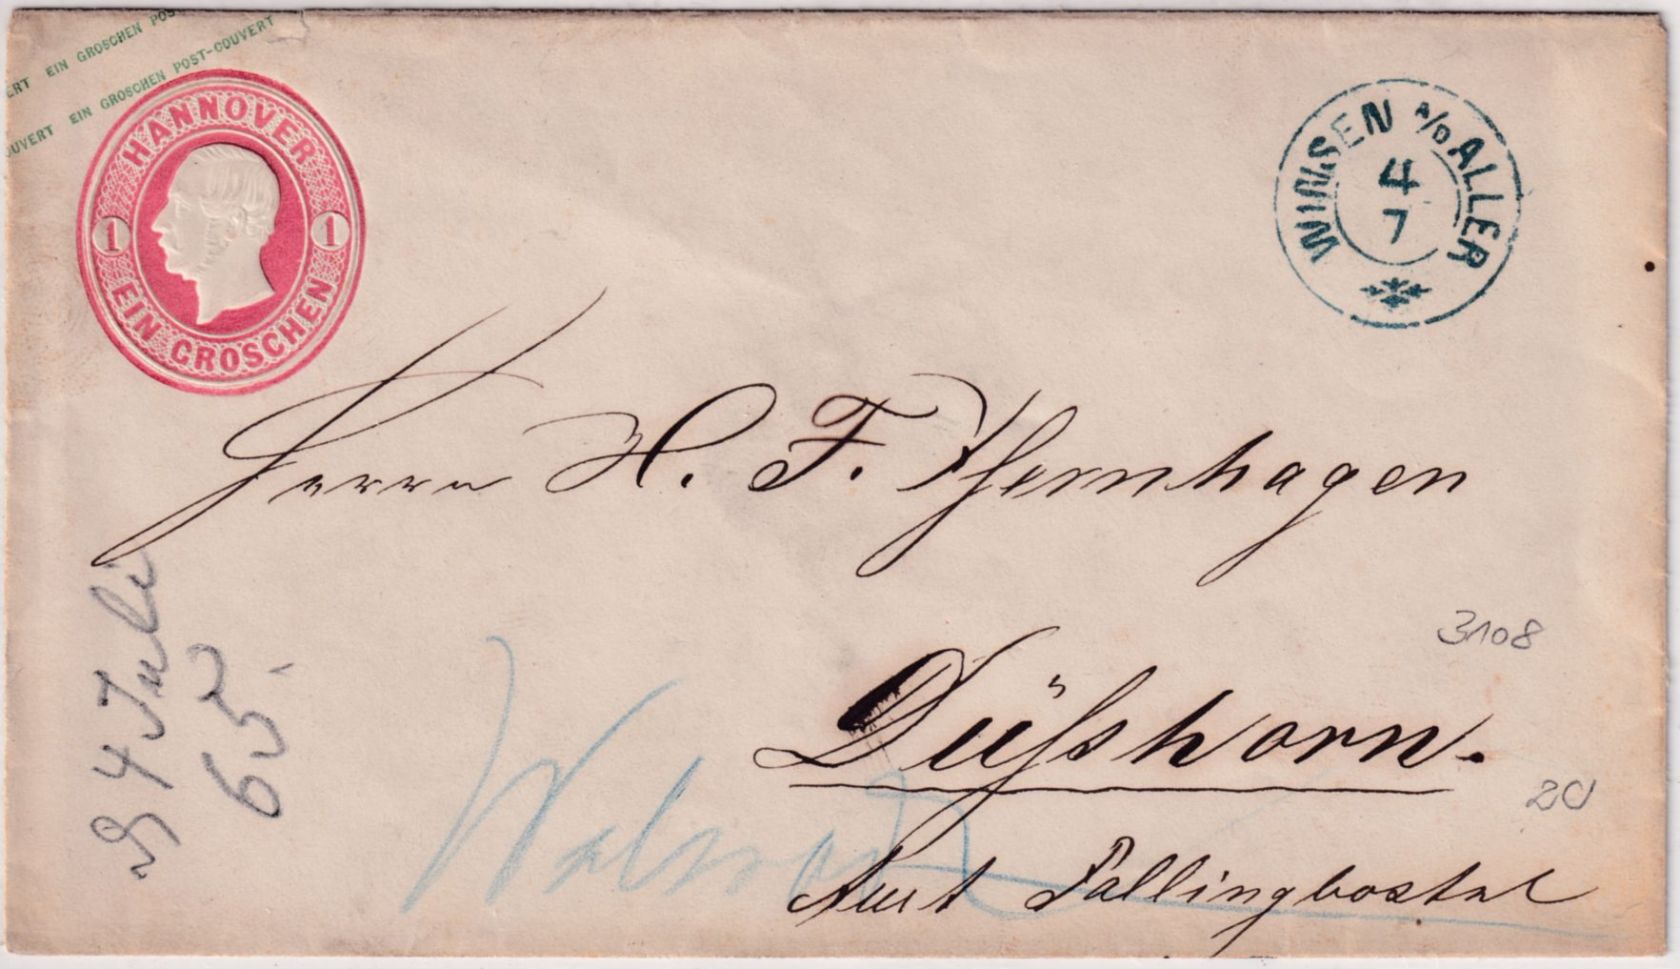 ERT EIN GROSCHEN POS
OUVERT EIN GROSCHEN POST-COUVERT
HANNOVER
1 1
EIN GROSCHEN
WINSEN A/D ALLER
4
7
Herrn H. F. Pfernhagen
Düshorn.
Amt Fallingbostel
4 Juli
65.
3108
20